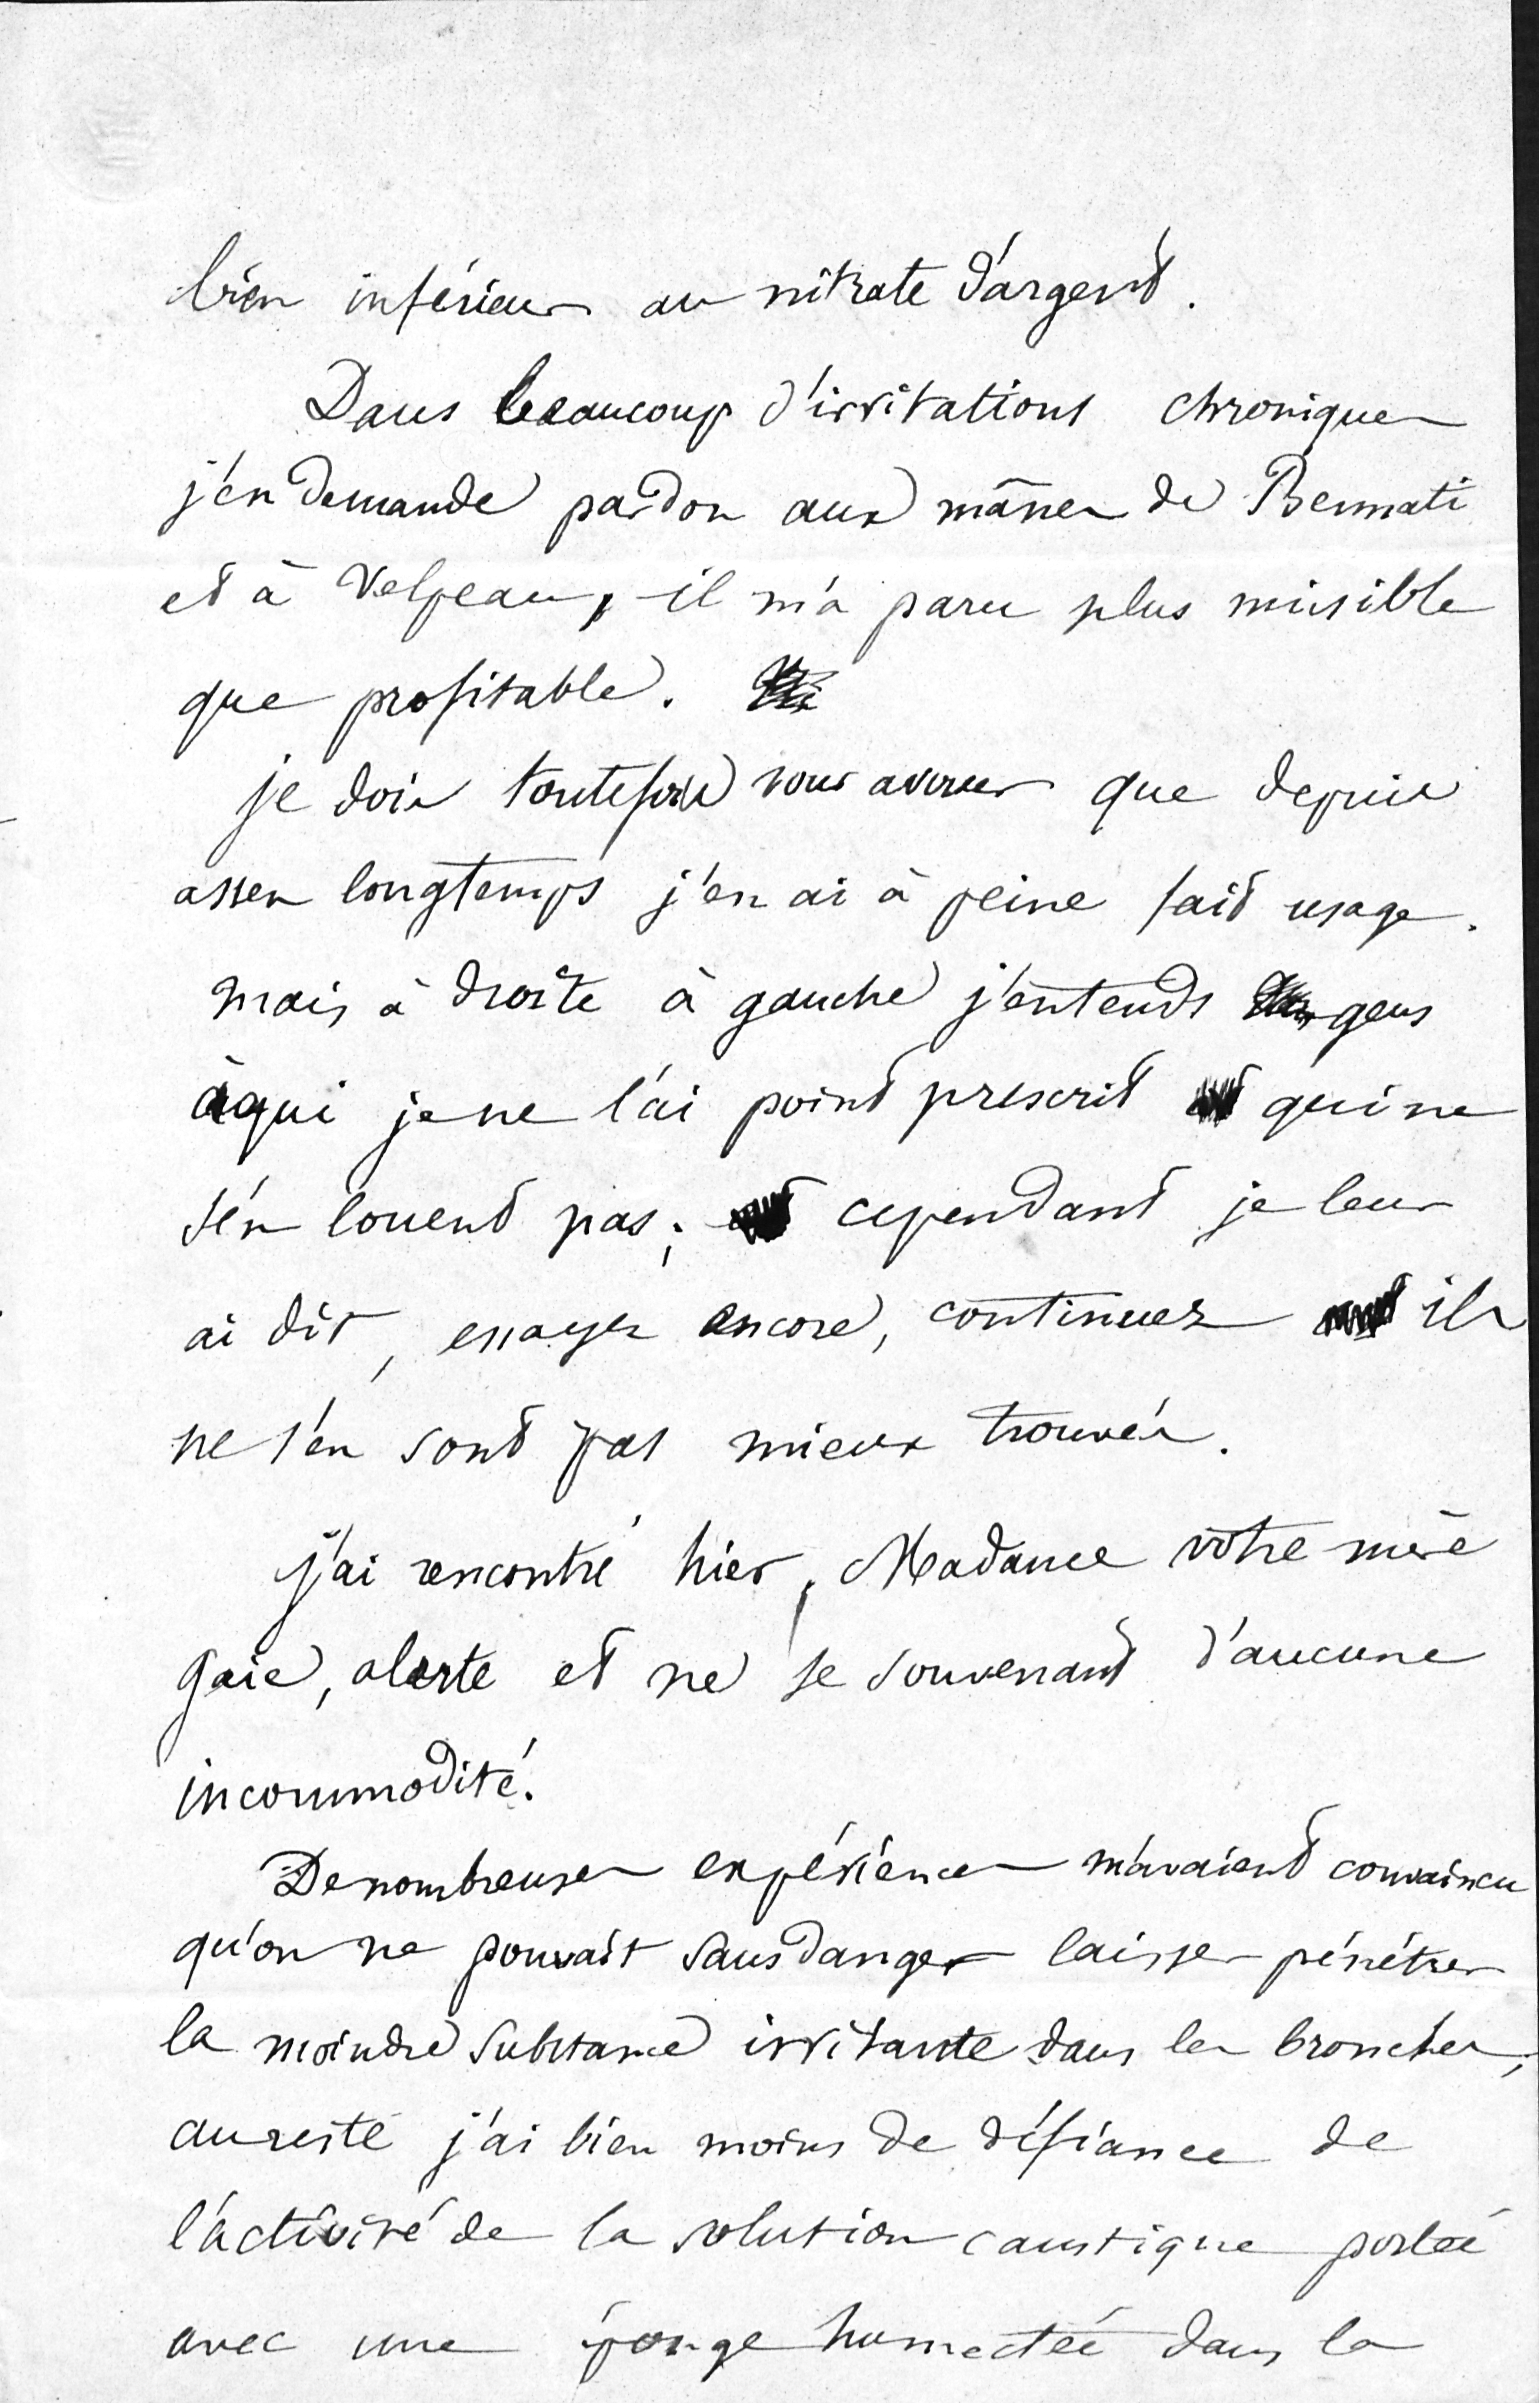 bien inférieur au nitrate d'argent.
Dans beaucoup d'irritations chroniques
j'en demande pardon aux mânes de Bennati
et à Velpeau, il m'a paru plus nuisible
que profitable.
je dois toutefois vous avouer que depuis
assez longtemps j'en ai à peine fait usage.
mais à droite à gauche j'entends gens
à qui je ne l'ai point prescrit qui ne
s'en louent pas; cependant je leur
ai dit, essayez encore, continuez ils
ne s'en sont pas mieux trouvés.
j'ai rencontré hier, Madame votre mère
gaie, alerte et ne se souvenant d'aucune
incommodité.
De nombreuses expériences m'avaient convaincu
qu'on ne pouvait sans danger laisser pénétrer
la moindre substance irritante dans les bronches;
au reste j'ai bien moins de défiance de
l'activité de la solution caustique portée
avec une éponge humectée dans la